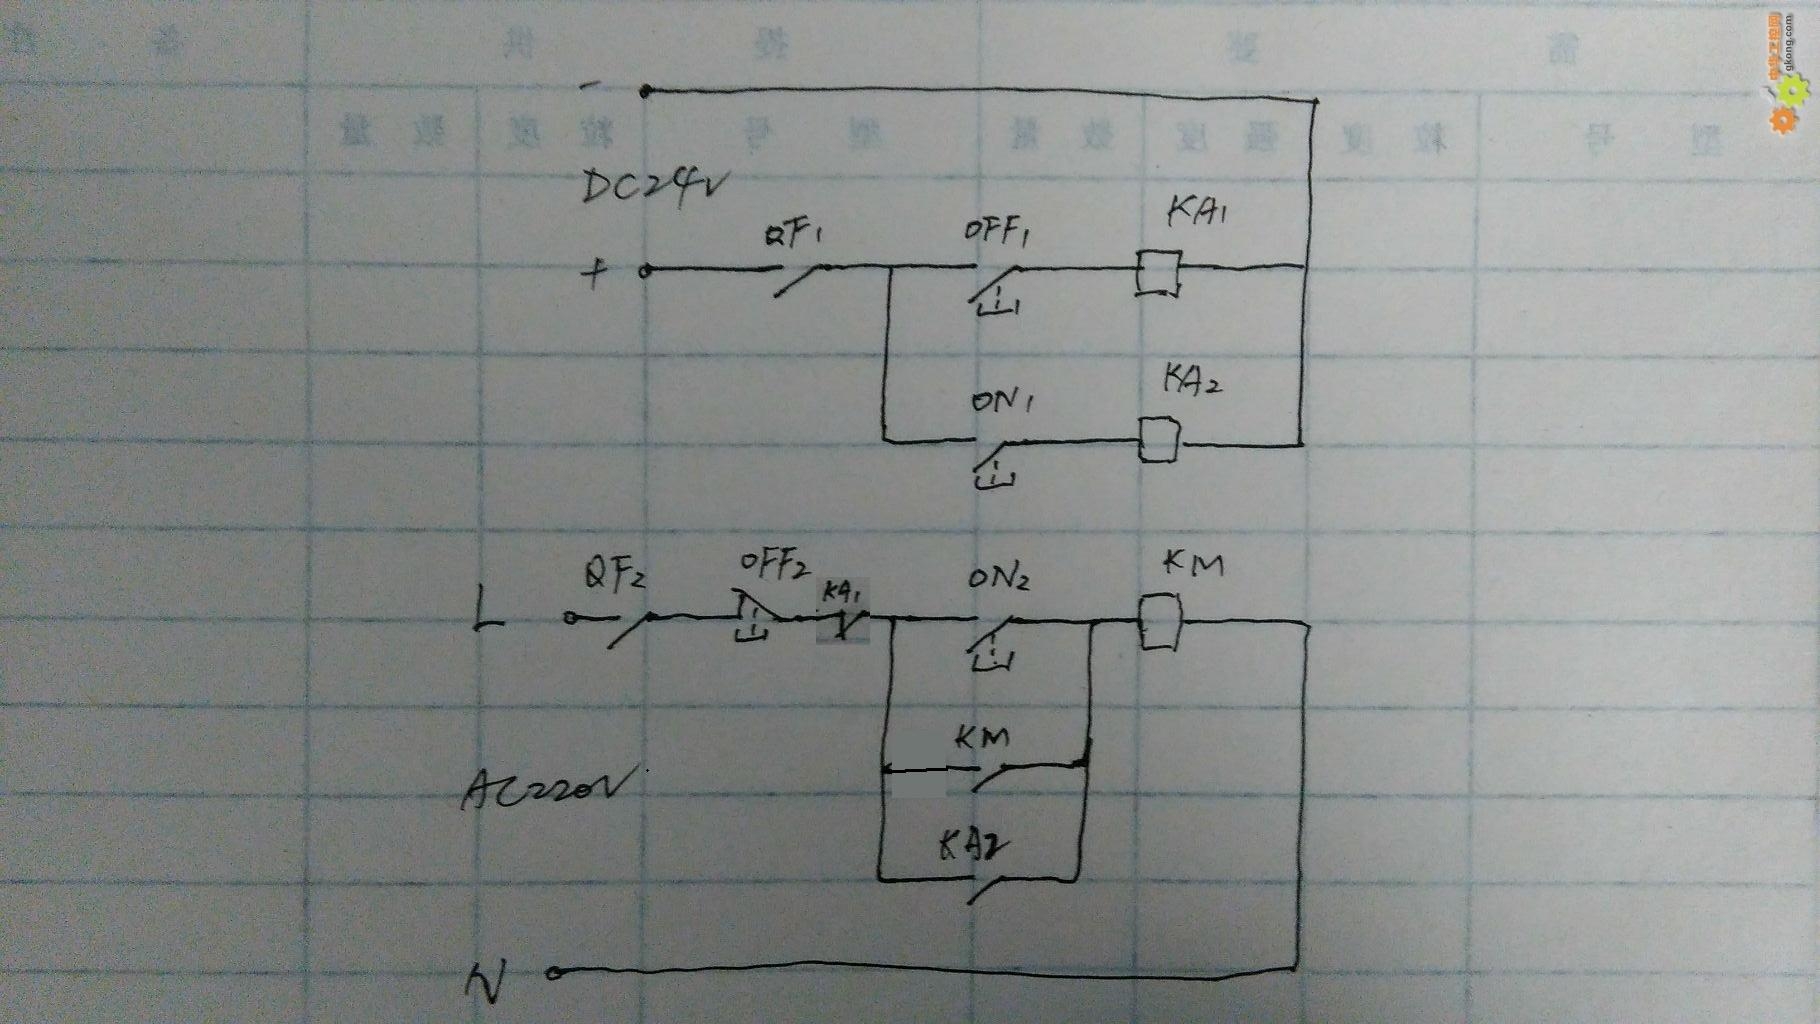 -
DC24V
QF1 OFF1 KA1
+
ON1 KA2
QF2 OFF2 KA1 ON2 KM
L
KM
AC220V
KA2
N
需 要 提 供 备 注
型 号 粒 度 强 度 数 量 型 号 粒 度 数 量
中华工控网
gkong.com